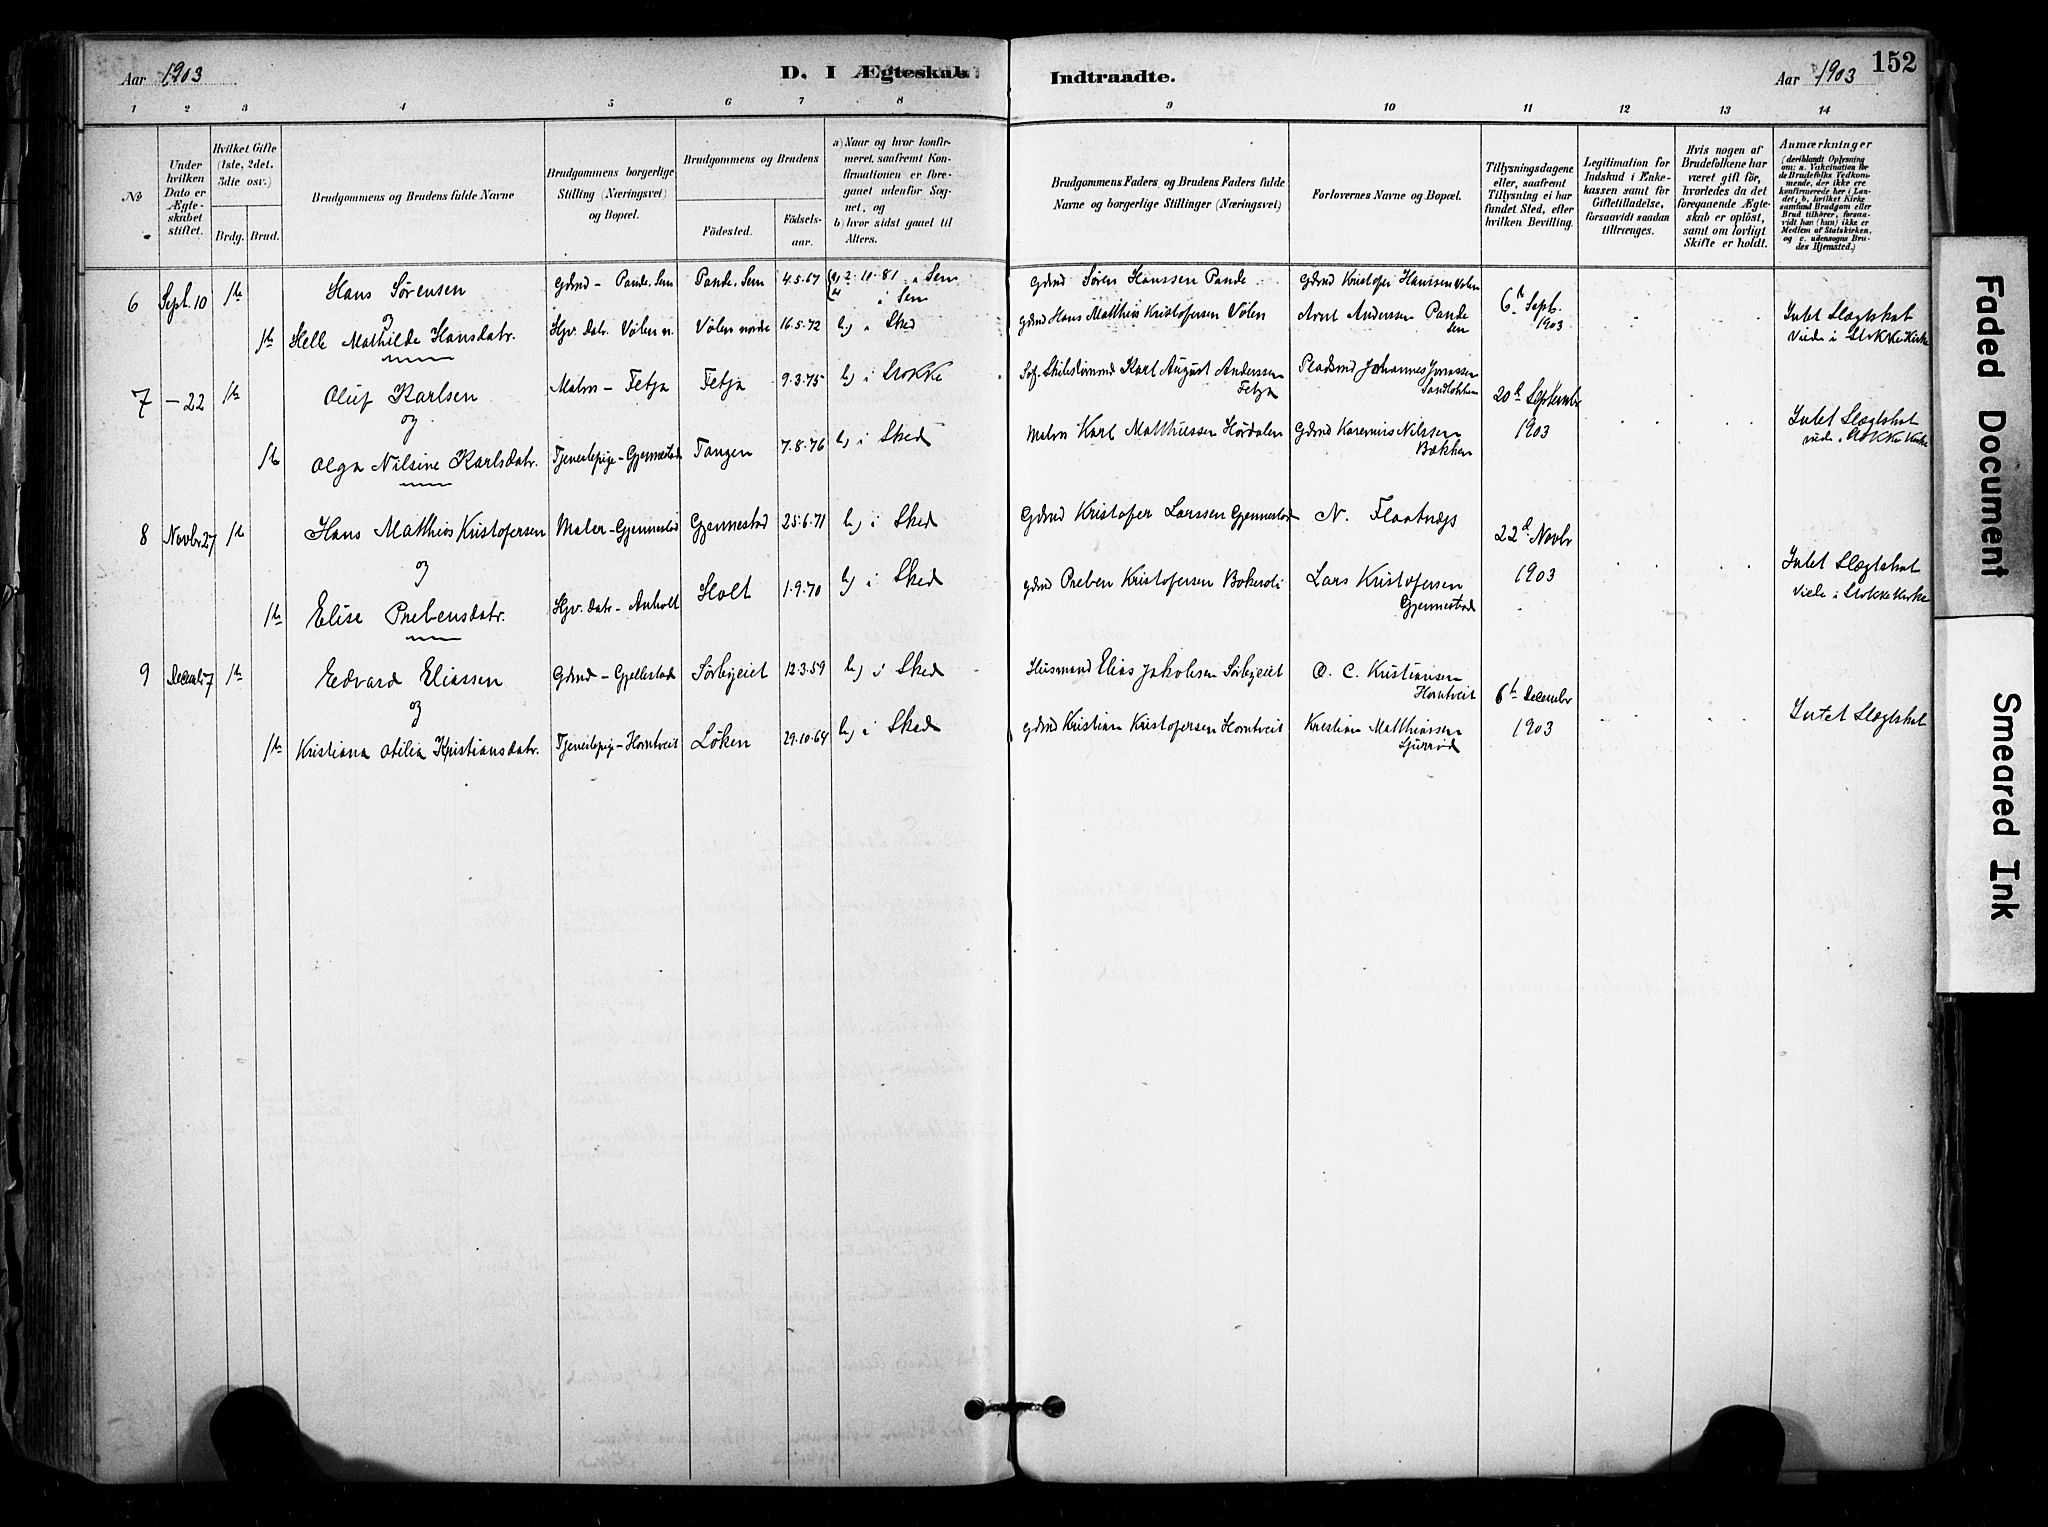 152
Aar 1903
D. I Ægteskab Indtraadte.
Aar 1903
1 2 3 4 5 6 7 8 9 10 11 12 13 14
No
Under hvilken Dato er Ægteskabet stiftet.
Hvilket Gifte (1ste, 2det, 3die osv.)
Brdg. Brud.
Brudgommens og Brudens fulde Navne
Brudgommens borgerlige Stilling (Næringsvei) og Bopæl.
Brudgommens og Brudens
Födested.
Födselsaar.
a) Naar og hvor konfirmeret, saafremt Konfirmationen er foregaaet udenfor Sognet, og
b) hvor sidst gaaet til Alters.
Brudgommens Faders og Brudens Faders fulde Navne og borgerlige Stillinger (Næringsvei)
Forlovernes Navne og Bopæl.
Tillysningsdagene eller, saafremt Tillysning ei har fundet Sted, efter hvilken Bevilling.
Legitimation for Indskud i Enkekassen samt for Giftetilladelse, forsaavidt saadan tiltrænges.
Hvis nogen af Brudefolkene har været gift för, hvorledes da det foregaaende Ægteskab er oplöst, samt om lovligt Skifte er holdt.
Anmærkninger
(deriblandt Oplysning om: a. Vakcination for de Brudefolks Vedkommende, der ikke ere konfirmerede her i Landet; b. hvilket Kirkesamfund Brudgom eller Brud tilhörer, forsaavidt han (hun) ikke er Medlem af Statskirken, og c. udensogns Brudes Hjemsted.)
6 Sept. 10 1ste Hans Sørensen Gdmd - Pande. Sem Pande. Sem 4.5.67 a) 2-10-81 i Sem i Sem Gdmd Søren Hanssen Pande Gdmd Kristofer Hanssen Vølen 6te Septb. 1903
og
Helle Mathilde Hansdatr. Gv. Datr. Vølen n. Vølen nordre 16.5.72 b) i Sked Gdmd Hans Matthias Kristofersen Vølen Arnt Anderssen Pande Sem Intet Slægtskab
Viede i Stokke Kirke
7 - 22 Oluf Karlsen Matros - Fetja Fetja 9.3.75 b) i Stokke Karl August Anderssen Fetja Pladsmd Johannes 20de September 1903
og
Olga Nilsine Karlsdatr. Tjenestepige - Gjennestad Tangen 7.8.76 b) i Sked Matros Karl Matthiessen Hørdalen Gdmd Karenius Nilssen Bakken Intet Slægtskab
viede i Stokke Kirke
8 Novbr 27 Hans Matthias Kristofersen Maler - Gjennestad Gjennestad 25.6.71 b) i Sked Gdmd Kristofer Larssen Gjennestad N. Flaatnæs 22de Novbr 1903
og
Elise Prebensdatr. Gv. Datr - Anholt Holt 1.9.70 b) i Sked Gdmd Preben Kristofersen Bokeroli Lars Kristofersen Gjennestad Intet Slægtskab
Viede i Stokke Kirke
9 Decemb 7 Edvard Eliassen Gdmd - Gjellestad Sørbyeiet 12.3.59 b) i Sked Husmand Elias Jakobsen Sørbyeiet O. C. Kristiansen Horntveit 6te December 1903
og
Kristiana Otilia Kristiansdatr. Tjenestepige - Horntveit Løken 29.10.64 b) i Sked Gdmd Kristian Kristofersen Horntveit Kristian Matthiassen Intet Slægtskab
Faded Document
Smeared Ink